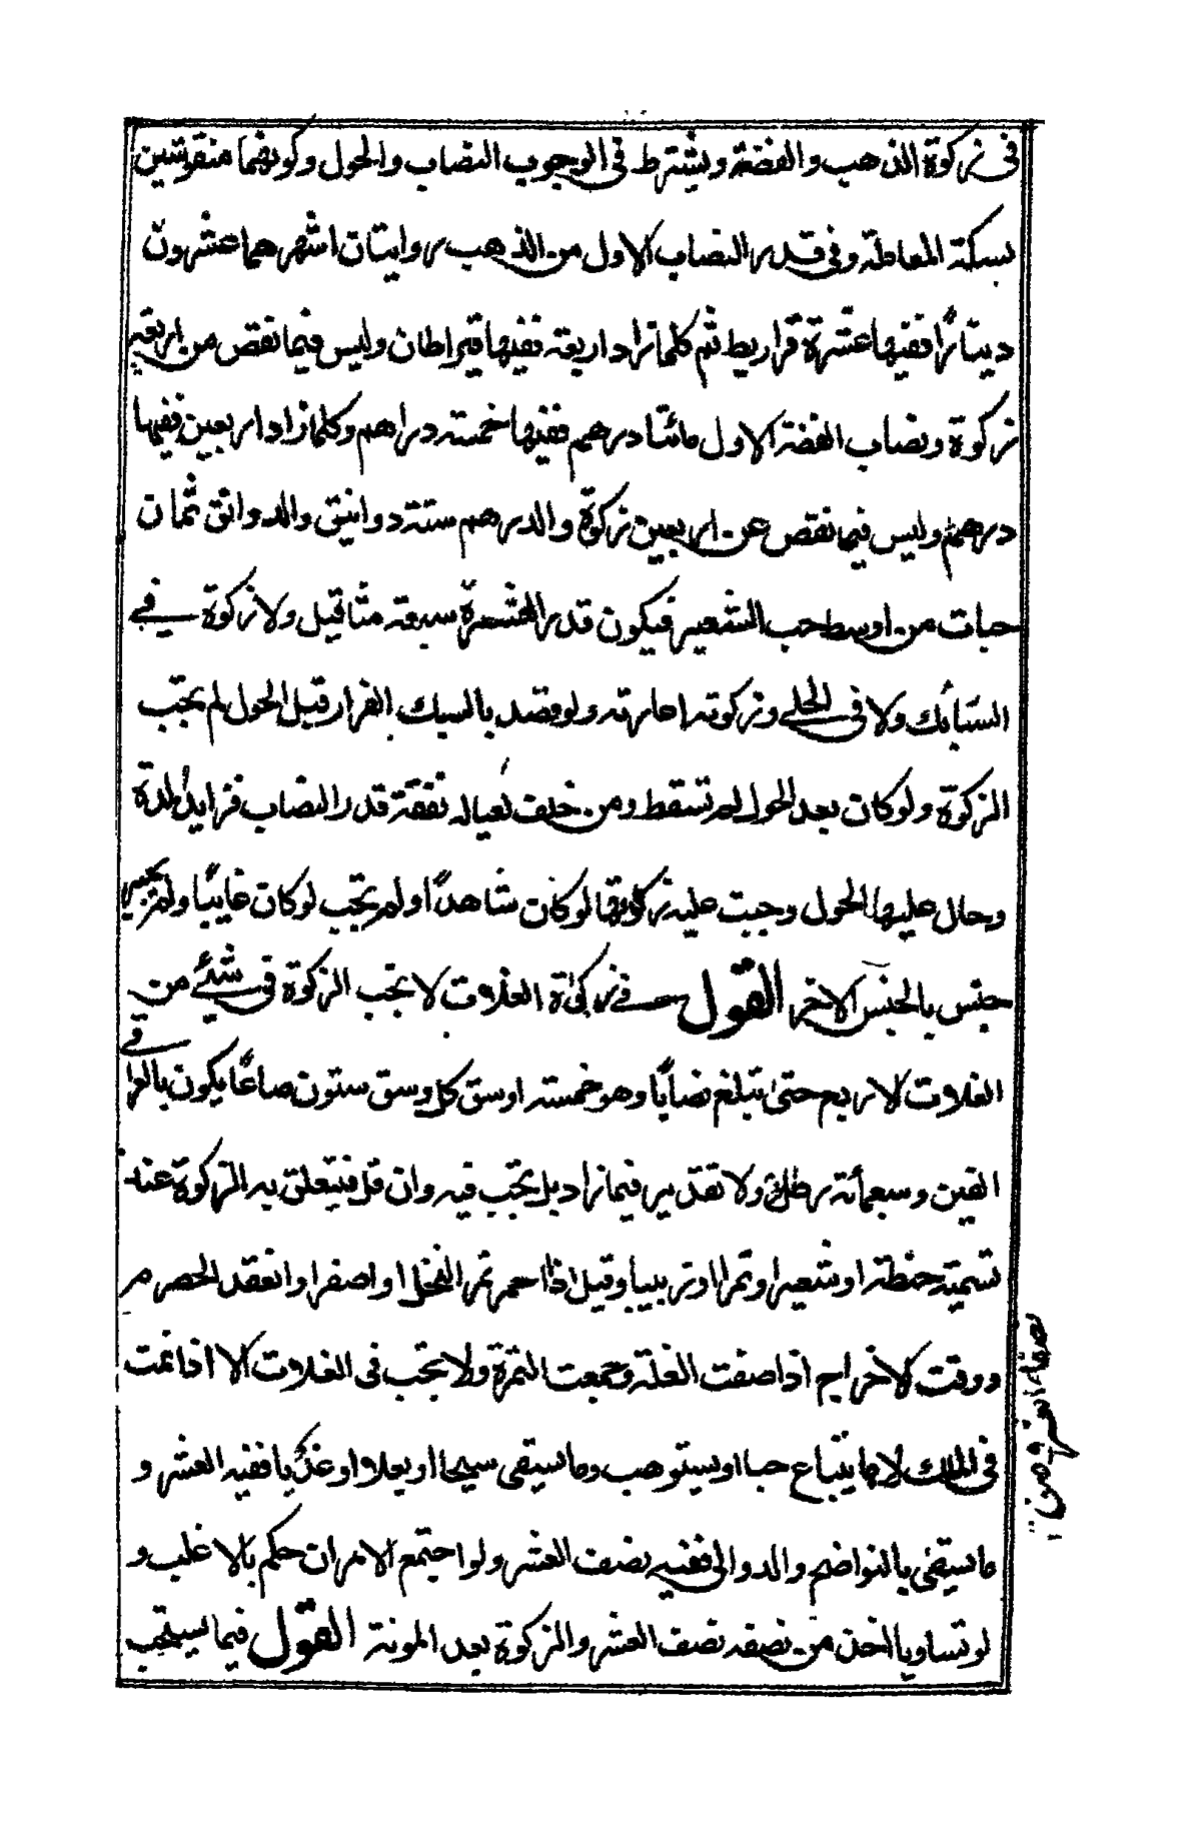 فى زكوة الذهب والفضة ويشترط فى الوجوب النصاب والحول وكونهما منقوشين
بسكة المعاملة وفى قدر النصاب الاول من الذهب روايتان اشهرهما عشرون
دينارًا ففيها عشرة قراريط ثم كلما زاد اربعة ففيها قيراطان وليس فيما نقص من اربعة
زكوة ونصاب الفضة الاول مائتا درهم ففيها خمسة دراهم وكلما زاد اربعين ففيها
درهم وليس فيما نقص عن اربعين زكوة والدرهم ستة دوانيق والدوانق ثمان
حبات من اوسط حب الشعير فيكون قدر العشرة سبعة مثاقيل ولا زكوة فى
السبائك ولا فى الحلى وزكوته اعارته ولو قصد بالسبك الفرار قبل الحول لم يجب
الزكوة ولو كان بعد الحول لم تسقط ومن خلف لعياله نفقة قدر النصاب فزايدًا لمدة
وحال عليها الحول وجبت عليه زكوتها لو كان شاهدًا ولم يجب لو كان غايبًا ولا يجبر
جنس بالجنس الاخر القول فى زكوة الغلات لا تجب الزكوة فى شئ من
الغلات الاربع حتى تبلغ نصابًا وهو خمسة اوسق كل وسق ستون صاعًا يكون بالعراقى
الفين وسبعمأئة رطل ولا تقدير فيما زاد بل يجب فيه وان قل فيتعلق به الزكوة عند
تسميته حنطة او شعيرا او تمرا او زبيبا وقيل اذا احمر ثمر النخل او اصفر او انعقد الحصرم
ووقت الاخراج اذا صفت الغلة وجمعت الثمرة ولا يجب فى الغلات الا اذا نمت
فى الملك لا ما يبتاع حبا او يستوهب وما يسقى سيحا او بعلا او عذيا ففيه العشر و
ما يسقى بالنواضح والدوالى ففيه نصف العشر ولو اجتمع الامران حكم بالاغلب و
لو تساويا اخذ من نصفه نصف العشر والزكوة بعد المونة القول فيما يستحب
نصفه العشر ومن